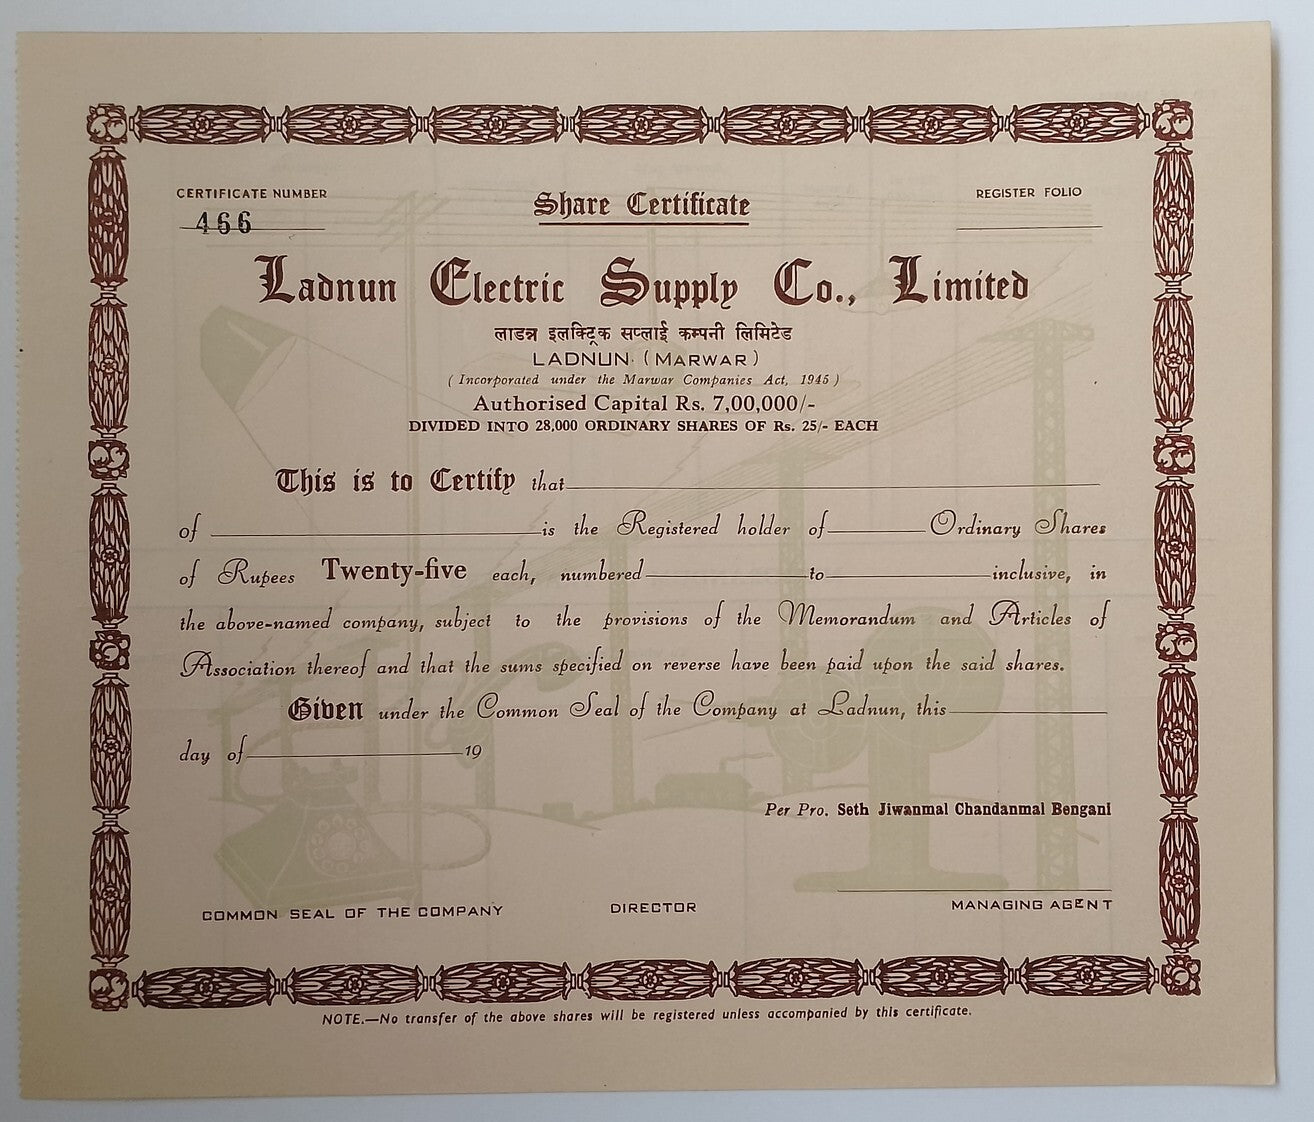 CERTIFICATE NUMBER
466
Share Certificate
REGISTER FOLIO
Ladnun Electric Supply Co., Limited
लाडनू इलक्ट्रिक सप्लाई कम्पनी लिमिटेड
LADNUN (MARWAR)
(Incorporated under the Marwar Companies Act, 1945)
Authorised Capital Rs. 7,00,000/-
DIVIDED INTO 28,000 ORDINARY SHARES OF Rs. 25/- EACH
This is to Certify that
of is the Registered holder of Ordinary Shares
of Rupees Twenty-five each, numbered to inclusive, in
the above-named company, subject to the provisions of the Memorandum and Articles of
Association thereof and that the sums specified on reverse have been paid upon the said shares.
Given under the Common Seal of the Company at Ladnun, this
day of 19
Per Pro. Seth Jiwanmal Chandanmal Bengani
COMMON SEAL OF THE COMPANY
DIRECTOR
MANAGING AGENT
NOTE.—No transfer of the above shares will be registered unless accompanied by this certificate.